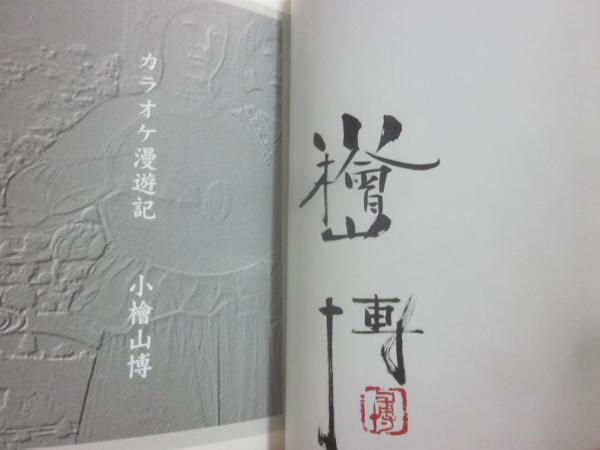 カラオケ漫遊記
小檜山博
小檜山
博
博